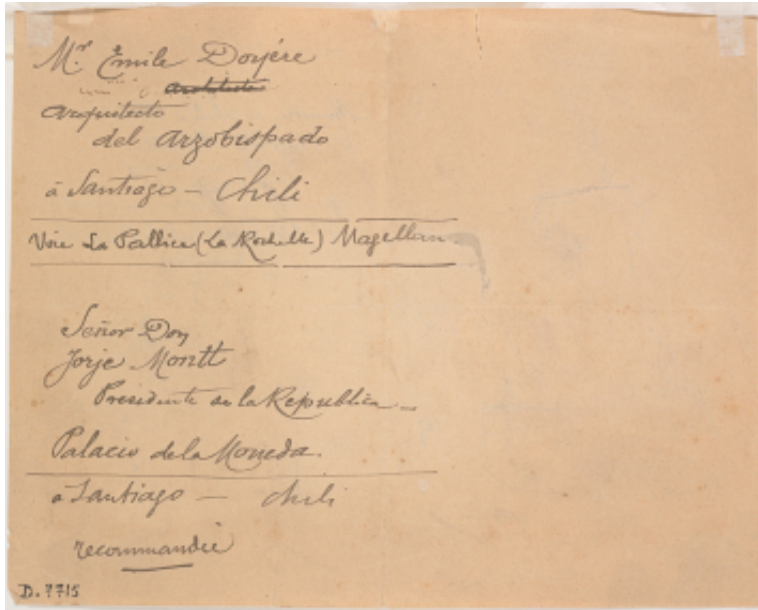 Mr Emile Doyére
Architecte
Arquitecto
del Arzobispado
à Santiago — Chili
Voie La Pallice (La Rochelle) Magellan
Señor Don
Jorje Montt
Presidente de la Republica —
Palacio de la Moneda.
à Santiago — Chili
recommandée
D. 7715